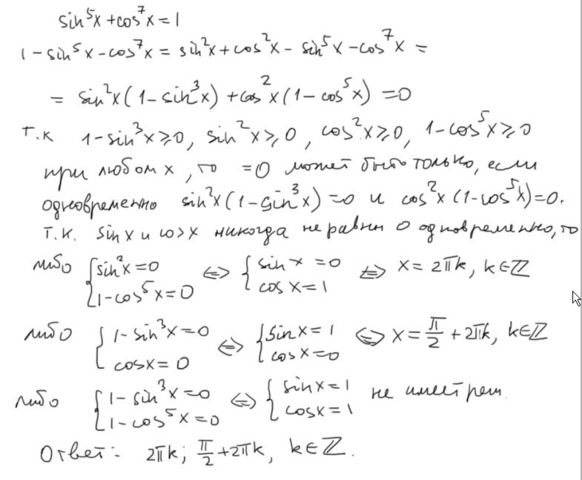 sin⁵x + cos⁷x = 1
1 - sin⁵x - cos⁷x = sin²x + cos²x - sin⁵x - cos⁷x =
= sin²x (1 - sin³x) + cos²x (1 - cos⁵x) = 0
т.к 1 - sin³x ≥ 0, sin²x ≥ 0, cos²x ≥ 0, 1 - cos⁵x ≥ 0
при любом x, то = 0 может быть только, если
одновременно sin²x (1 - sin³x) = 0 и cos²x (1 - cos⁵x) = 0.
т.к. sin x и cos x никогда не равны 0 одновременно, то
либо { sin²x = 0 ⇔ { sin x = 0 ⇔ x = 2πk, k ∈ ℤ
1 - cos⁵x = 0 cos x = 1
либо { 1 - sin³x = 0 ⇔ { sin x = 1 ⇔ x = π/2 + 2πk, k ∈ ℤ
cos x = 0 cos x = 0
либо { 1 - sin³x = 0 ⇔ { sin x = 1 не имеет реш.
1 - cos⁵x = 0 cos x = 1
Ответ: 2πk; π/2 + 2πk, k ∈ ℤ.